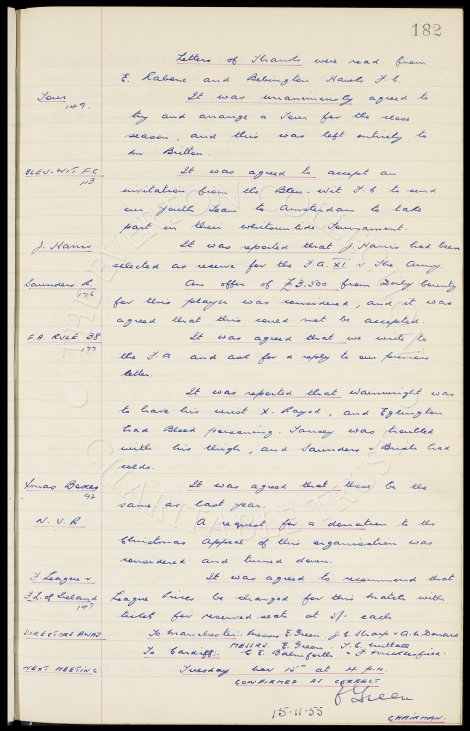 182
Letters of Thanks were read from
E. Rabone and Bebington Hawks F.C.
Tour 149. It was unanimously agreed to
try and arrange a Tour for the close
season, and this was left entirely to
Mr Britton.
BLEU-WIT F.C 113 It was agreed to accept an
invitation from the Bleu-Wit F.C to send
our Youth Team to Amsterdam to take
part in their Whitsuntide Tournament.
J. Harris It was reported that J. Harris had been
selected as reserve for the F.A. XI v The Army.
Saunders R. 176 An offer of £3.500 from Derby County
for this player was considered, and it was
agreed that this could not be accepted.
F.A. RULE 38 177 It was agreed that we write to
the F.A and ask for a reply to our previous
letter.
It was reported that Wainwright was
to have his wrist X-Rayed, and Eglington
had Blood poisoning. Tansey was troubled
with his thigh, and Saunders & Birch had
colds.
Xmas Boxes 92 It was agreed that these be the
same as last year.
N.U.R A request for a donation to the
Christmas Appeal of this organisation was
considered and turned down.
F League v It was agreed to recommend that
F.L. of Ireland 147 League Prices be changed for this match with
ticket for reserved seats at 5/- each
DIRECTORS AWAY To Manchester: Messrs E. Green, J.C. Sharp &
To Cardiff. MESSRS. E. Green T.C. Nuttall
C.E. Balmforth & F. Micklesfield.
NEXT MEETING Tuesday Nov 15th at 4 P.M.
CONFIRMED AS CORRECT
E Green
15-11-55
CHAIRMAN.